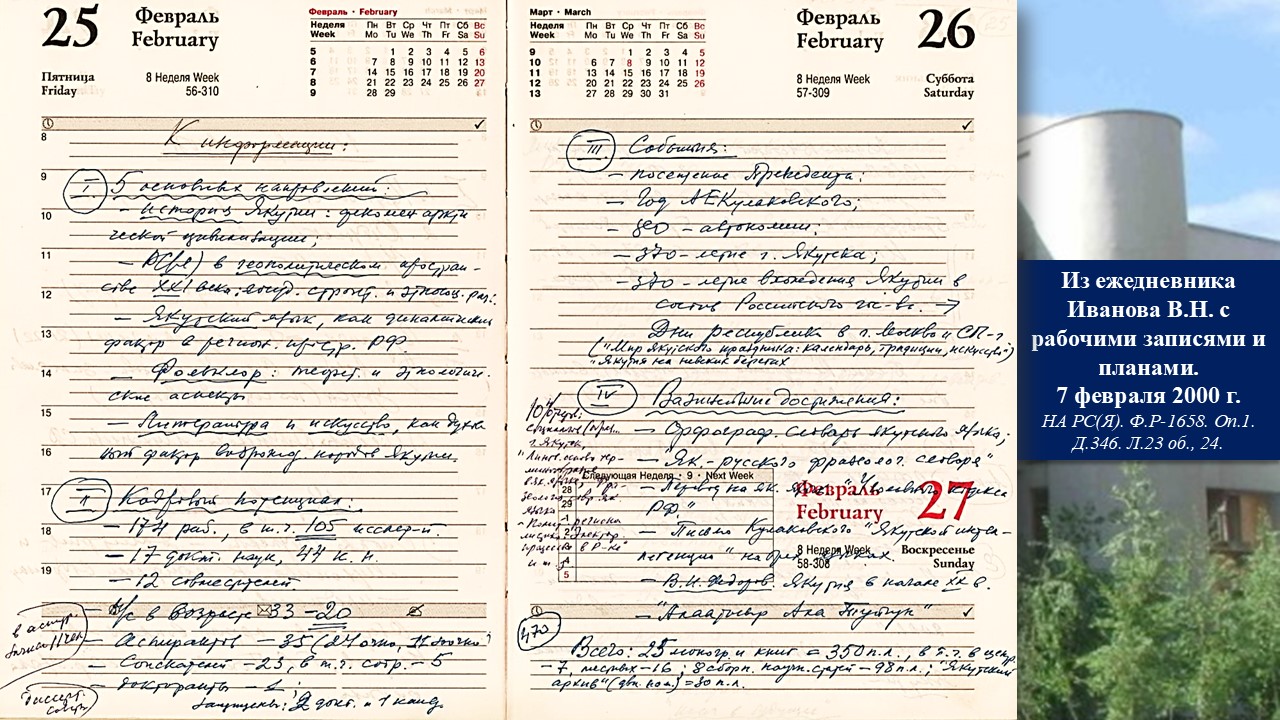 25 Февраль
February
Пятница
Friday
8 Неделя Week
56-310
Февраль • February
Неделя Пн Вт Ср Чт Пт Сб Вс
Week Mo Tu We Th Fr Sa Su
5 1 2 3 4 5 6
6 7 8 9 10 11 12 13
7 14 15 16 17 18 19 20
8 21 22 23 24 25 26 27
9 28 29
К информации:
I 5 основных направлений:
– История Якутии: феномен аркти
ческой цивилизации;
– РС(я) в геополитическом простран-
стве XXI века:
– Якутский язык, как динамический
фактор в регион. простр. РФ.
– Фольклор: теорет. и
ские аспекты
– Литература и искусство, как духов
ный фактор народов Якутии.
II Кадровый потенциал:
– 174 раб., в т.ч. 105 исслед-й.
– 17 докт. наук, 47 к.н.
– 12 совместителей.
– Н/с в возрасте 33 – 20
– Аспирантов – 35 (24 очно, 11 заочно)
– Соискателей – 23, в т.ч. сотр. – 5
– Докторанты –
Защищены: 2 докт. и 1 канд.
8
9
10
11
12
13
14
15
16
17
18
19
Март • March
Неделя Пн Вт Ср Чт Пт Сб Вс
Week Mo Tu We Th Fr Sa Su
9 1 2 3 4 5
10 6 7 8 9 10 11 12
11 13 14 15 16 17 18 19
12 20 21 22 23 24 25 26
13 27 28 29 30 31
Февраль 26
February
8 Неделя Week
57-309
Суббота
Saturday
III События:
– посещение Президента;
– Год А.Е.Кулаковского;
– 80 – автономии;
– 370-летие г. Якутска;
– 370-летие вхождения Якутии в
состав Российского гос-ва. →
Дни республики в г. Москве и СП-г
("Мир якутского праздника: календарь, традиции, искусство")
"Якутия на невских берегах
IV Важнейшие достижения:
– Орфограф. словарь якутского языка;
– "Як.-русского фразеолог. словаря"
– Перевод на як. Уголовного кодекса
РФ."
– Письмо Кулаковского "Якутской интел-
легенции" на
– В.И. Федоров. Якутия в начале XX в.
Следующая Неделя - 9 - Next Week
28
29
5
Февраль 27
February
8 Неделя Week
58-308
Воскресенье
Sunday
470
Всего: 25 моногр. и книг = 350 п.л., в т.ч. в центр.
– 7, местных – 16; 8 сборн. научн. статей – 98 п.л.; "Якутский
архив" = 30 п.л.
Из ежедневника
Иванова В.Н. с
рабочими записями и
планами.
7 февраля 2000 г.
НА РС(Я). Ф.Р-1658. Оп.1.
Д.346. Л.23 об., 24.